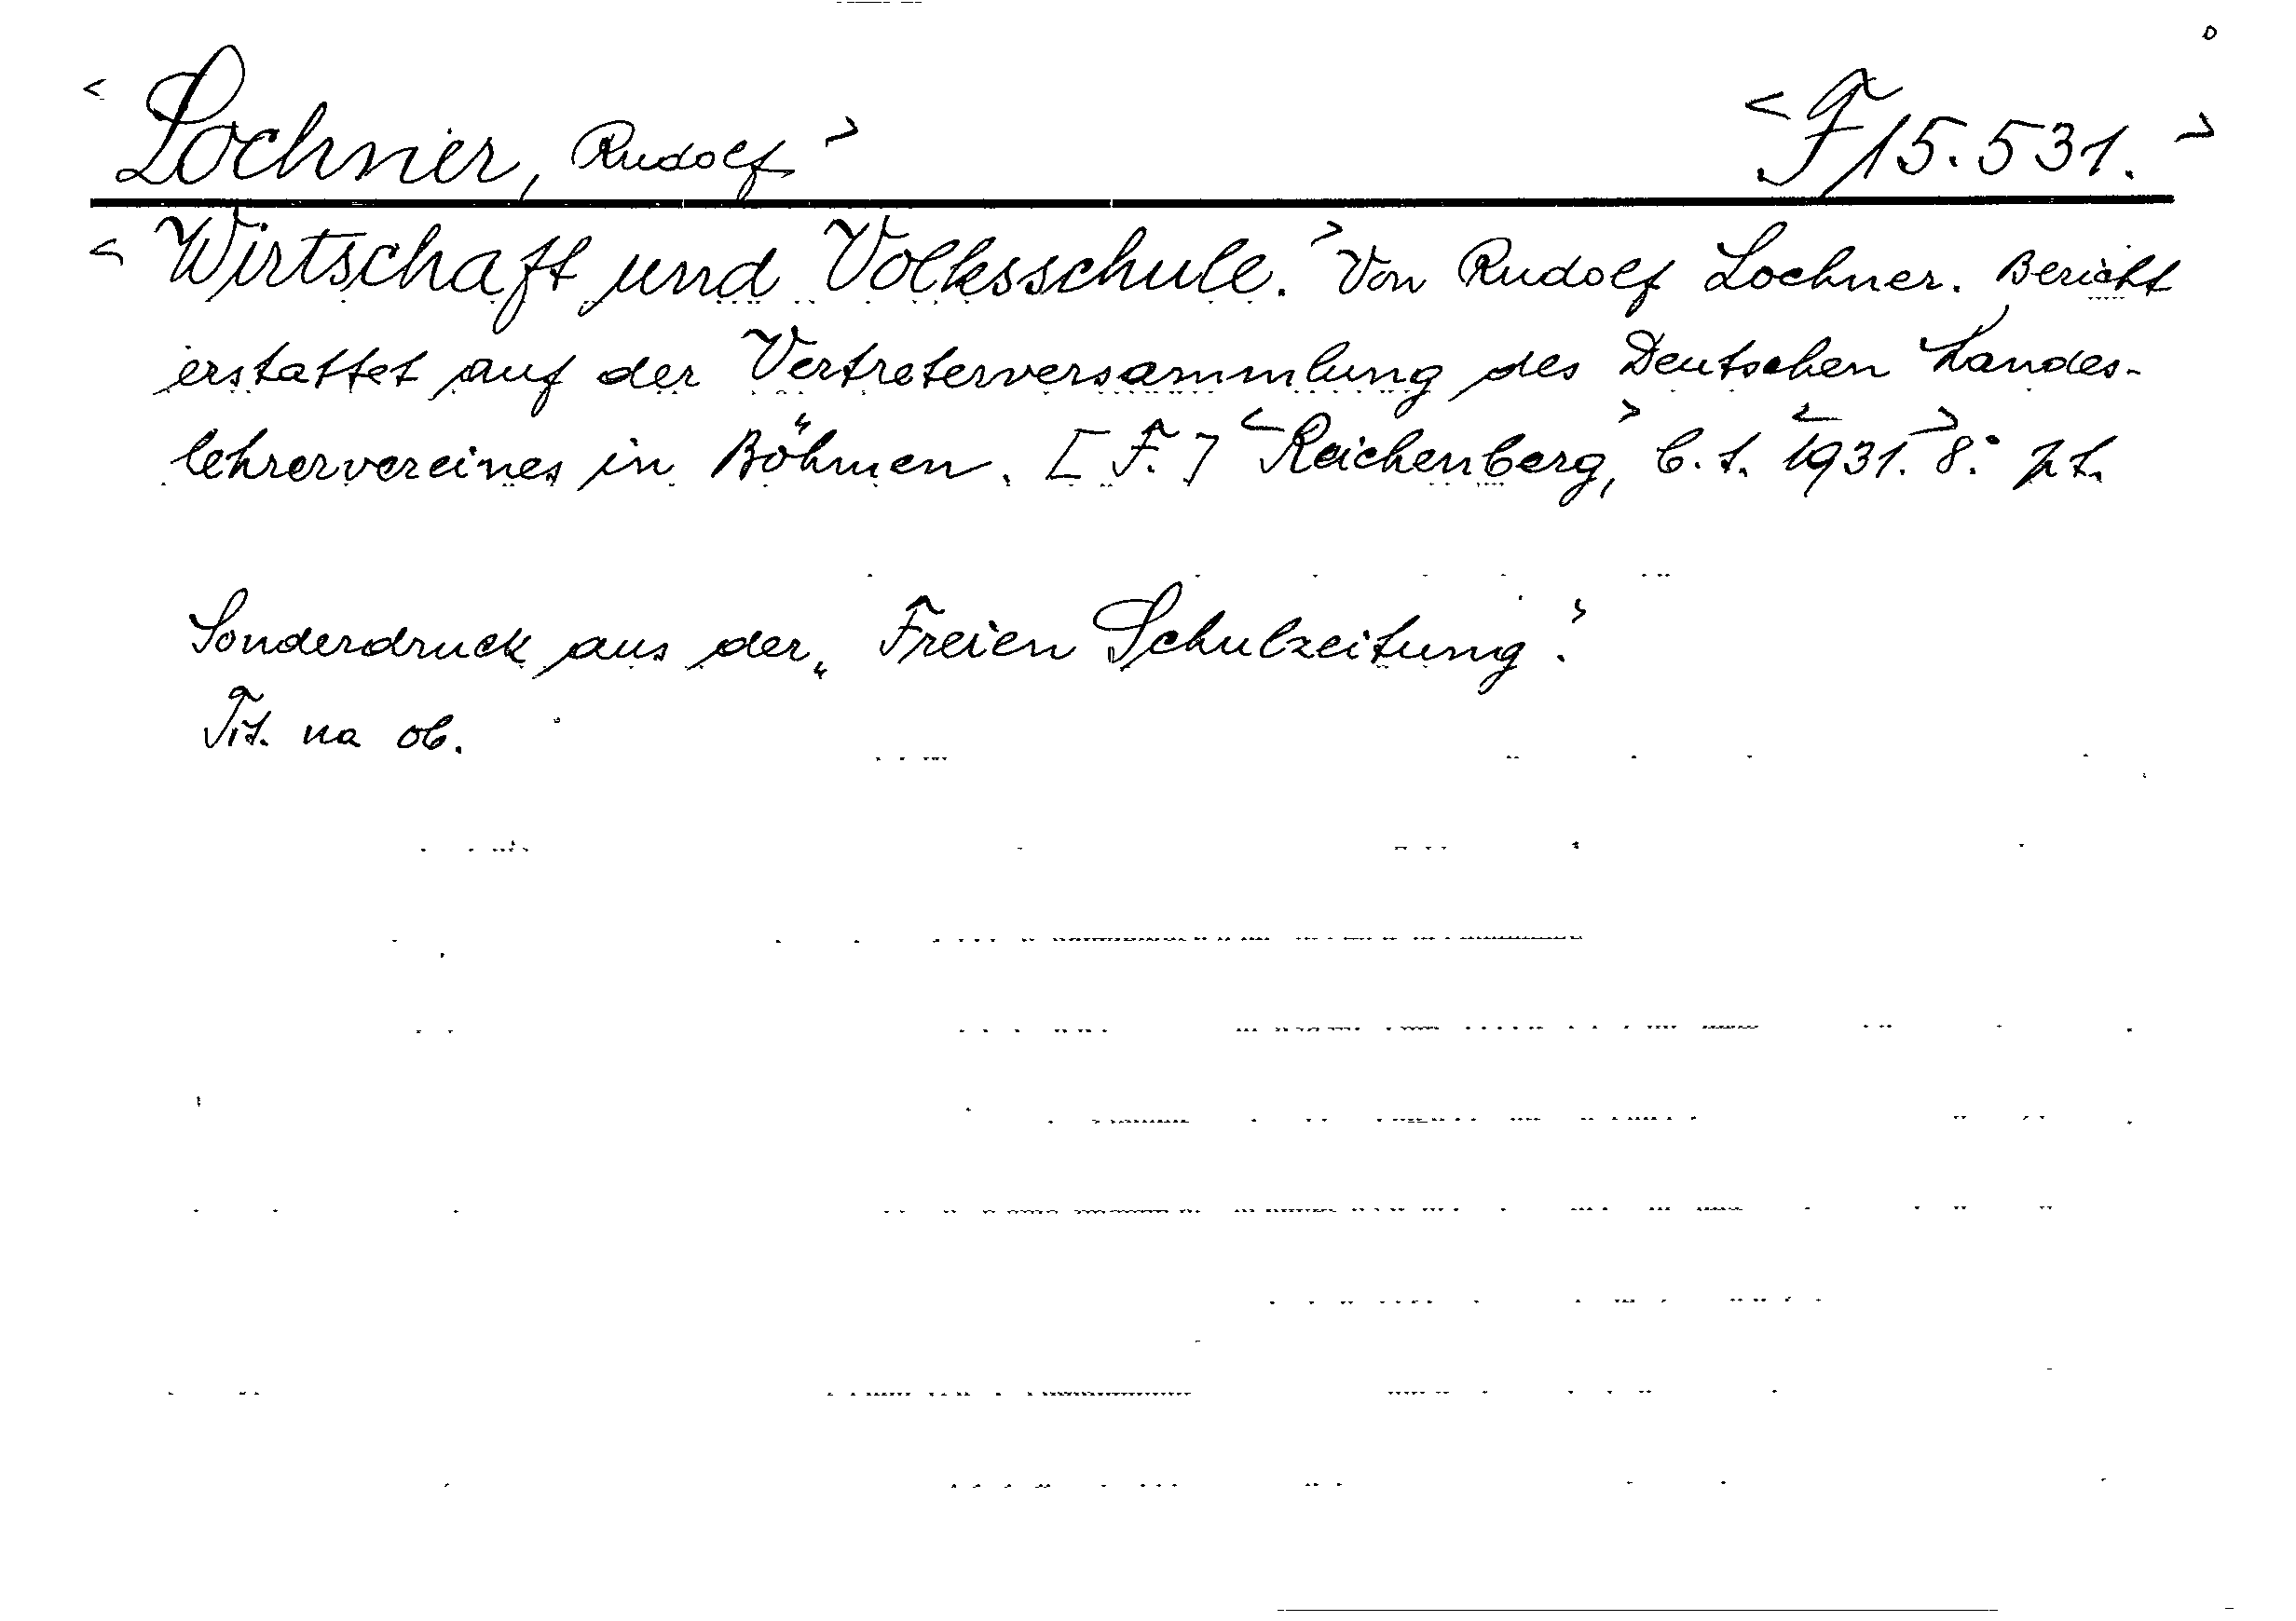 < Lochner, Rudolf > < F 15.531. >
< Wirtschaft und Volksschule. > Von Rudolf Lochner. Bericht
erstattet auf der Vertreterversammlung des Deutschen Landes-
lehrervereines in Böhmen. [F.] < Reichenberg, > b. t. < 1931. > 8.°
Sonderdruck aus der „Freien Schulzeitung".
Tit. na ob.